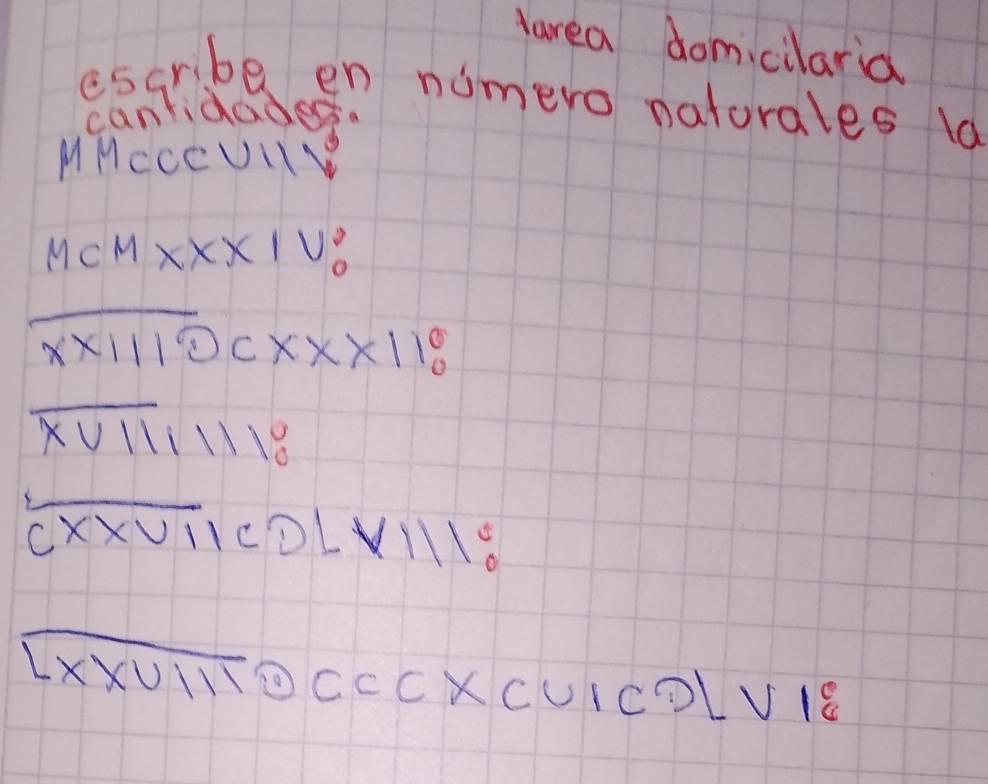 tarea domicilaria
escribe en número naturales la
cantidades.
MMCCCVIII:
MCMXXXIV:
XXIIIDCXXXII:
XVIIIIII:
CXXVIICDLVIII:
LXXVIIIDCCCXCVICDLVI: